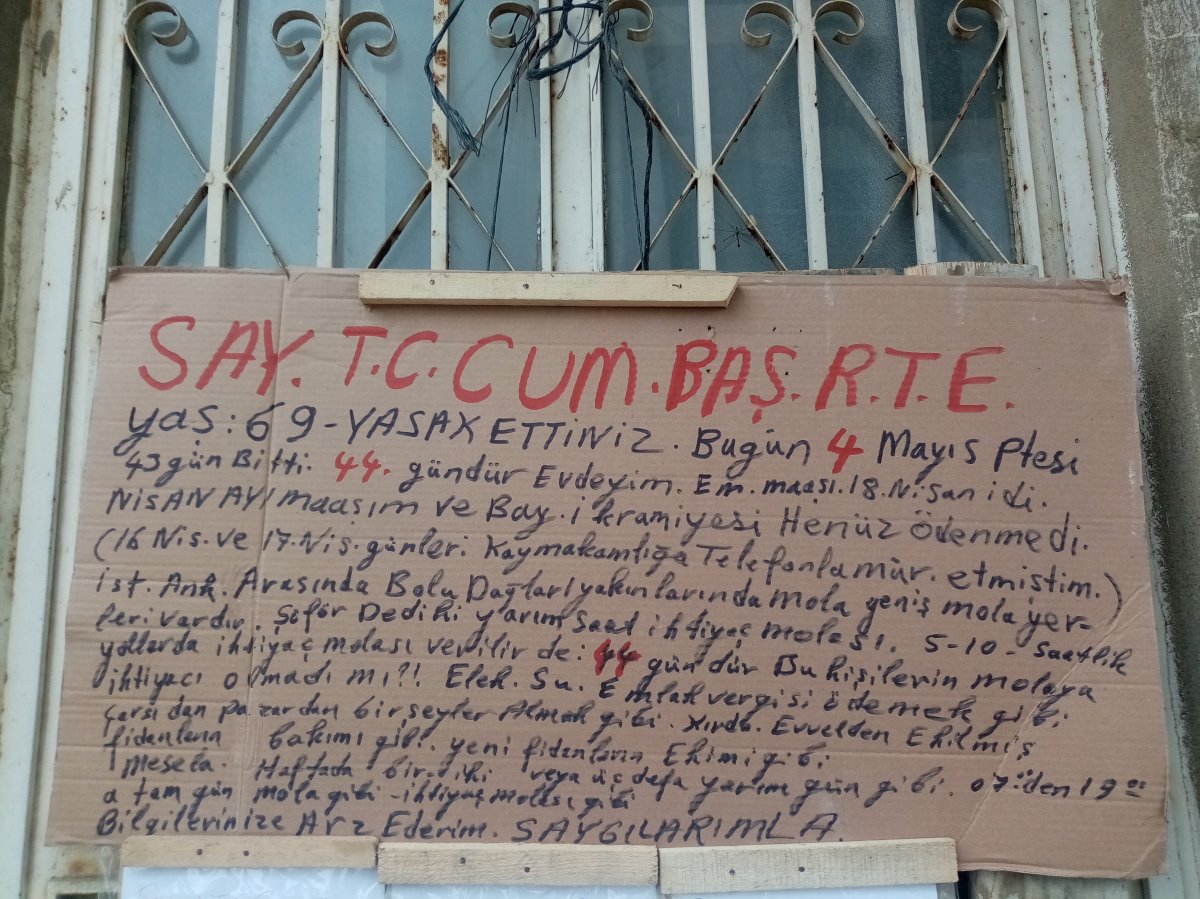 SAY. T.C. CUM. BAŞ. R.T.E.
yaş: 69-YASAK ETTİNİZ. Bugün 4 Mayıs Ptesi
43 gün Bitti. 44. gündür Evdeyim. Em. maaşı. 18. Nisan idi.
NİSAN AYI maaşım ve Bay. ikramiyesi Henüz Ödenmedi.
(16 Nis. ve 17. Nis. günleri Kaymakamlığa Telefonla mür. etmiştim.)
ist. Ank. Arasında Bolu Dağları yakınlarında mola geniş mola yer-
leri vardır. Şöför Dediki yarım saat ihtiyaç molası. 5-10- saatlik
yollarda ihtiyaç molası verilir de: 44 gün dür Bu kişilerin molaya
ihtiyacı olmadı mı?! Elek. Su. Emlak vergisi ödemek gibi
Çarşıdan pazardan birşeyler Almak gibi. Kırda. Evvelden Ekilmiş
fidanların bakımı gibi. yeni fidanların Ekimi gibi
Mesela. Haftada bir-iki veya üç defa yarım gün gibi. 07:00 den 19:00
a tam gün mola gibi - ihtiyaç molası gibi
Bilgilerinize Arz Ederim. SAYGILARIMLA.